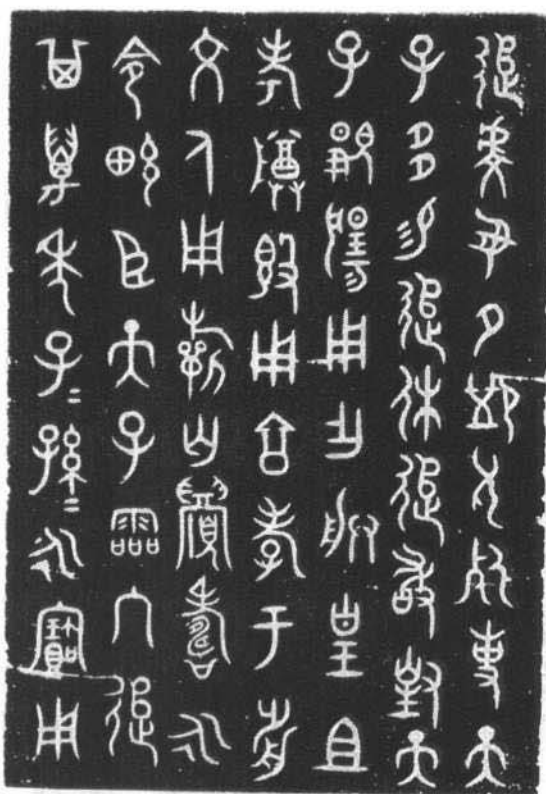 追虔夙夕卹厥死事天
子多易追休追敢對天
子覭揚用乍朕皇且
考尊𣪘用亯孝于前
文人用𣄨匄眉壽永
令畯臣天子霝冬追
其萬年子=孫=永寶用